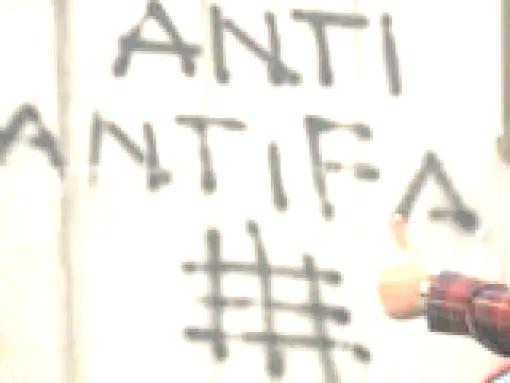 ANTI
ANTIFA